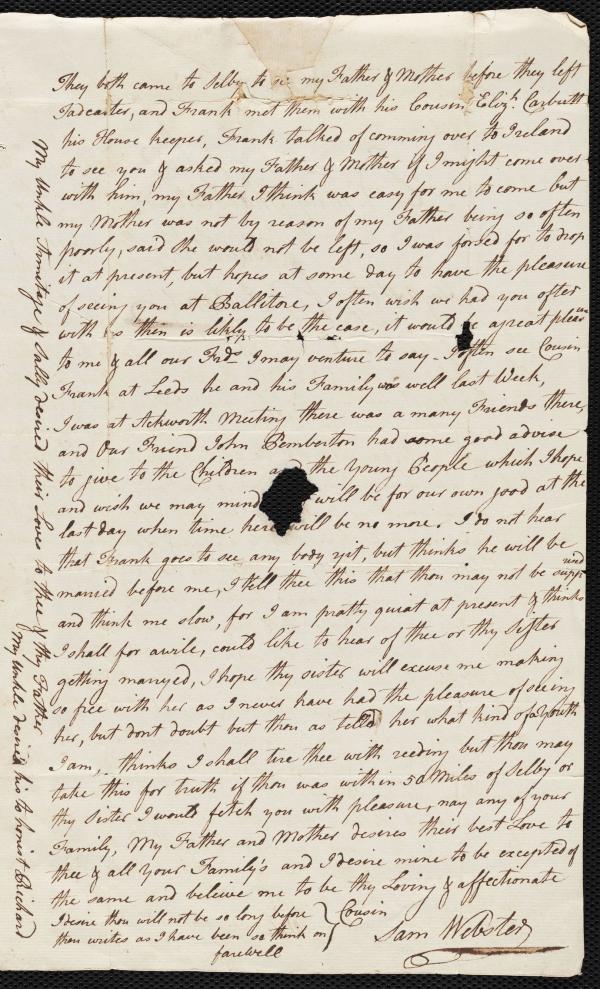 They both came to Selby to see my Father & Mother before they left
Tadcaster, and Frank met them with his Cousin Eliz.h Carbutt
his House keeper, Frank talked of comming over to Ireland
to see you & asked my Father & Mother if I might come over
with him, my Father I think was easy for me to come but
my Mother was not by reason of my Father being so often
poorly, said she would not be left, so I was forsed for to drop
it at present, but hopes at some day to have the pleasure
of seeing you at Ballitore, I often wish we had you ofter
with us then is likly to be the case, it would be a great pleasure
to me & all our Frds I may venture to say - I often see Cousin
Frank at Leeds he and his Family was well last Week,
I was at Ackworth Meeting there was a many Friends there,
and Our Friend John Pemberton had some good advise
to give to the Children and the Young People which I hope
and wish we may mind will be for our own good at the
last day when time here will be no more. I do not hear
that Frank goes to see any body yit, but thinks he will be
married before me, I tell thee this that thou may not be
and think me slow, for I am pratty quiat at present & thinks
I shall for awile, could like to hear of thee or thy Sister
getting marryed, I hope thy sister will excuse me making
so free with her as I never have had the pleasure of seeing
her, but dont doubt but thou as telld her what kind of a Youth
I am, thinks I shall tire thee with reeding but thou may
take this for truth if thou was within 50 Miles of Selby or
thy Sister I would fetch you with pleasure, nay any of your
Family, My Father and Mother desires their best Love to
thee & all Your Family's and I desire mine to be excepted of
the same and beleive me to be thy Loving & affectionate
Cousin
Sam Webster
I desire thou will not be so long before
thou writes as I have been so think on
farewell
My Unkle Armitage & Sally desired their Loves to thee & thy Father
My Unkle desired his to honist Richard